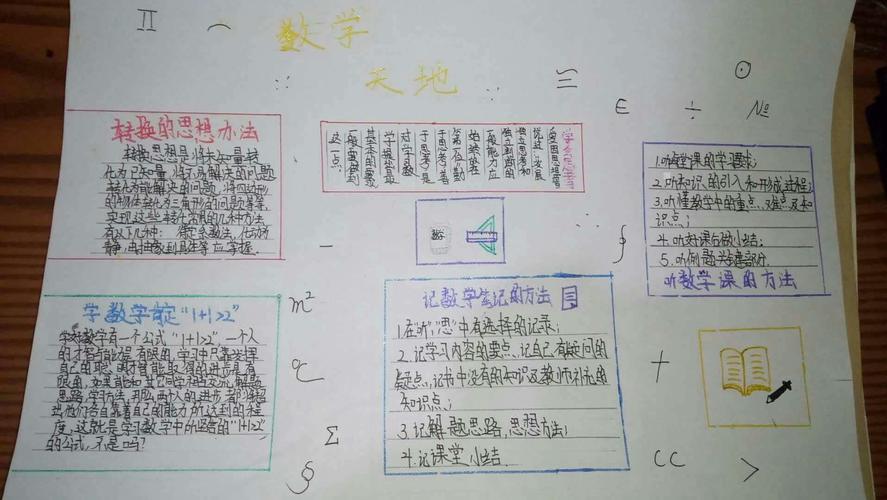 数学
天地
转换的思想办法
转换思想是将未知量转
化为已知量,将不易解决的问题
转化为能解决的问题,将四边形
的物体转化为三角形的问题等等。
实现这些转化常用的几种方法
有以下几种:待定系数法,化动为
静,由抽象到具体等应掌握.
学会思考
爱因斯坦曾
说过:“发展
独立思考和
独立判断的
一般能力应
始终放在
第一位”勤
于思考,善
于思考,是
对学习数
学提出最
基本的要求
一般要做到
这一点.
1.听每堂课的学习要求;
2.听知识的引入和形成过程;
3.听懂教学中的重点、难点及知
识点;
4.听好课后做小结;
5.听例题关键部分.
听数学课的方法
数学
学数学肯定“1+1>2”
学好数学有一个公式“1+1>2”,一个人
的才智可能是有限的,学习中只靠发挥
自己的聪明才智能取得的进步是有
限的,如果能和其它同学相互交流,解题
思路,学习方法,那么两个人的进步
他们各自靠着自己的能力所达到的程
度,这就是学习数学中所必备的“1+1>2”
的公式,不是吗?
记数学笔记的方法
1.在“听”,“思”中有选择的记录;
2.记学习内容的要点、记自己有疑问的
疑点、记书中没有的知识及教师补充的
知识点;
3.记解题思路、思想方法;
4.记课堂小结.
Π ⌒
∵ ∴ ≡ ⊙
∈ ÷ №
− ∮
m² ℃ +
Σ § CC >